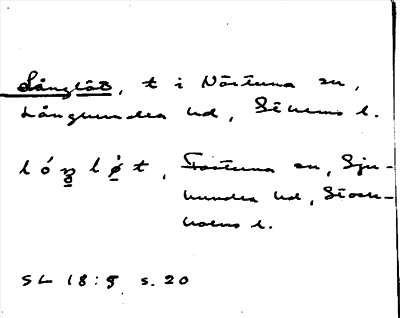 Långlöt, t i Närtuna sn,
Långhundra hd, Sthlms l.
lóŋlø̇t, Fasterna sn, Sju-
hundra hd, Stock-
holms l.
SL 18:5 s. 20